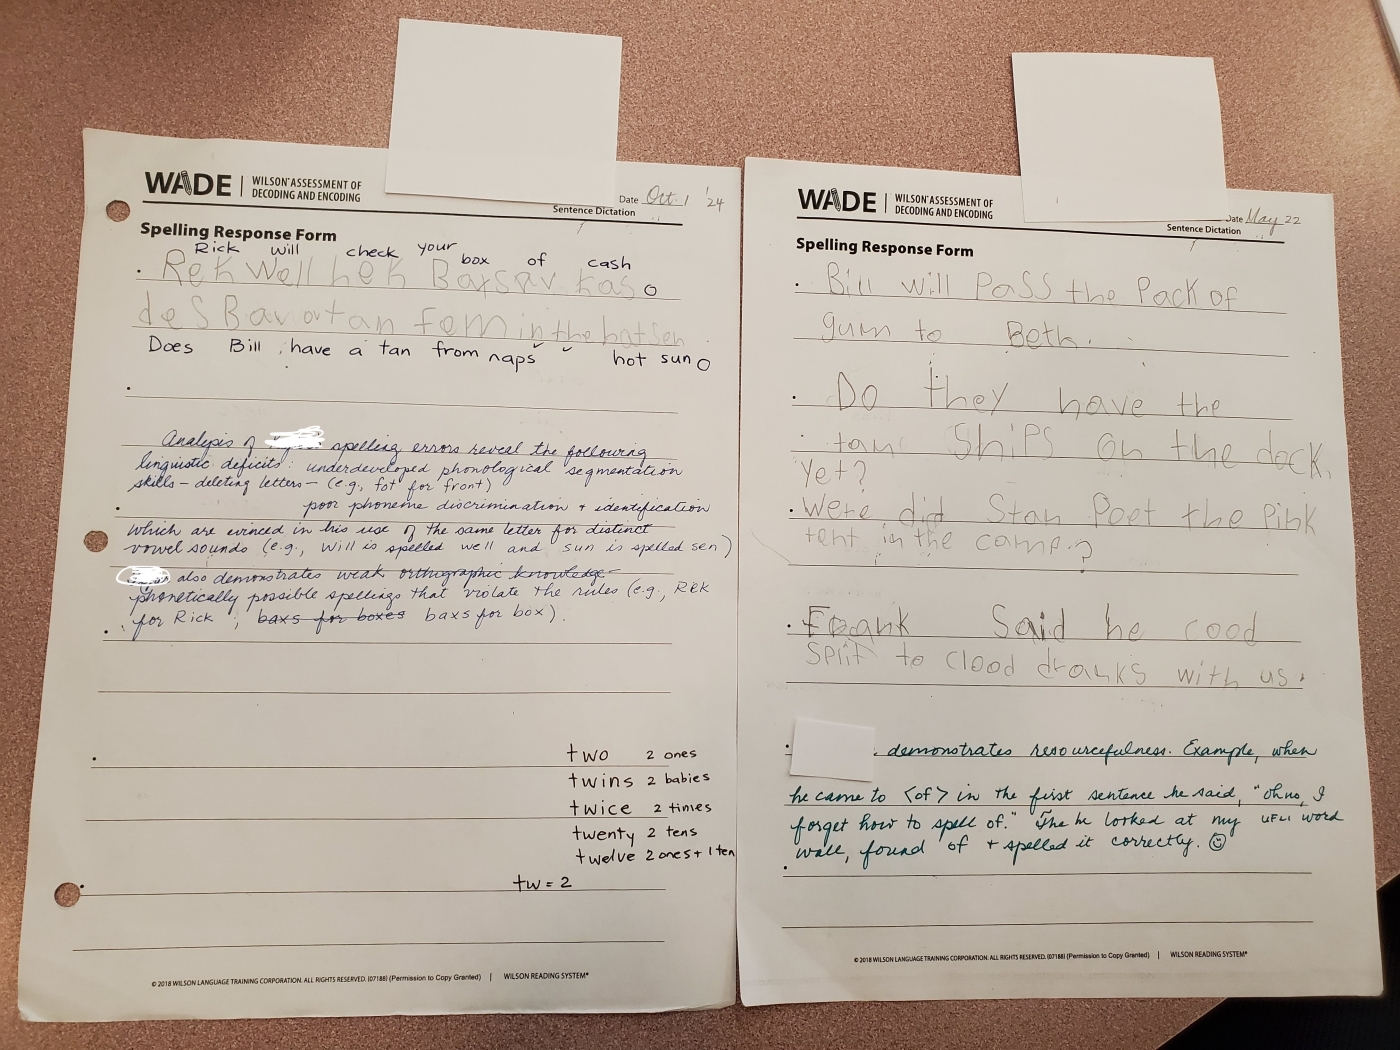 WADE | WILSON ASSESSMENT OF
DECODING AND ENCODING
Date Oct. 1 '24
Sentence Dictation
Spelling Response Form
Rick will check your box of cash
Rek Well hek Baxs av kas
des Bav av tan fom in the hot sen
Does Bill have a tan from naps hot sun
Analysis of spelling errors reveal the following
linguistic deficits: underdeveloped phonological segmentation
skills - deleting letters - (e.g., fot for front)
poor phoneme discrimination + identification
which are evinced in his use of the same letter for distinct
vowel sounds (e.g., will is spelled well and sun is spelled sen)
also demonstrates weak orthographic knowledge -
phonetically possible spellings that violate the rules (e.g., Rek
for Rick; baxs for boxes baxs for box).
two 2 ones
twins 2 babies
twice 2 times
twenty 2 tens
twelve 2 ones + 1 ten
tw = 2
© 2018 WILSON LANGUAGE TRAINING CORPORATION. ALL RIGHTS RESERVED. (07188) (Permission to Copy Granted) | WILSON READING SYSTEM®
WADE | WILSON ASSESSMENT OF
DECODING AND ENCODING
Date May 22
Sentence Dictation
Spelling Response Form
Bill will Pass the Pack of
gum to Beth.
Do they have the
tan Ships on the dock
Yet?
Were did Stan Poet the Pink
tent in the camp?
Frank Said he cood
Split to clood dranks with us.
demonstrates resourcefulness. Example, when
he came to <of> in the first sentence he said, "oh no, I
forget how to spell of." The he looked at my UFLI word
wall, found of + spelled it correctly. ☺
© 2018 WILSON LANGUAGE TRAINING CORPORATION. ALL RIGHTS RESERVED. (07188) (Permission to Copy Granted) | WILSON READING SYSTEM®